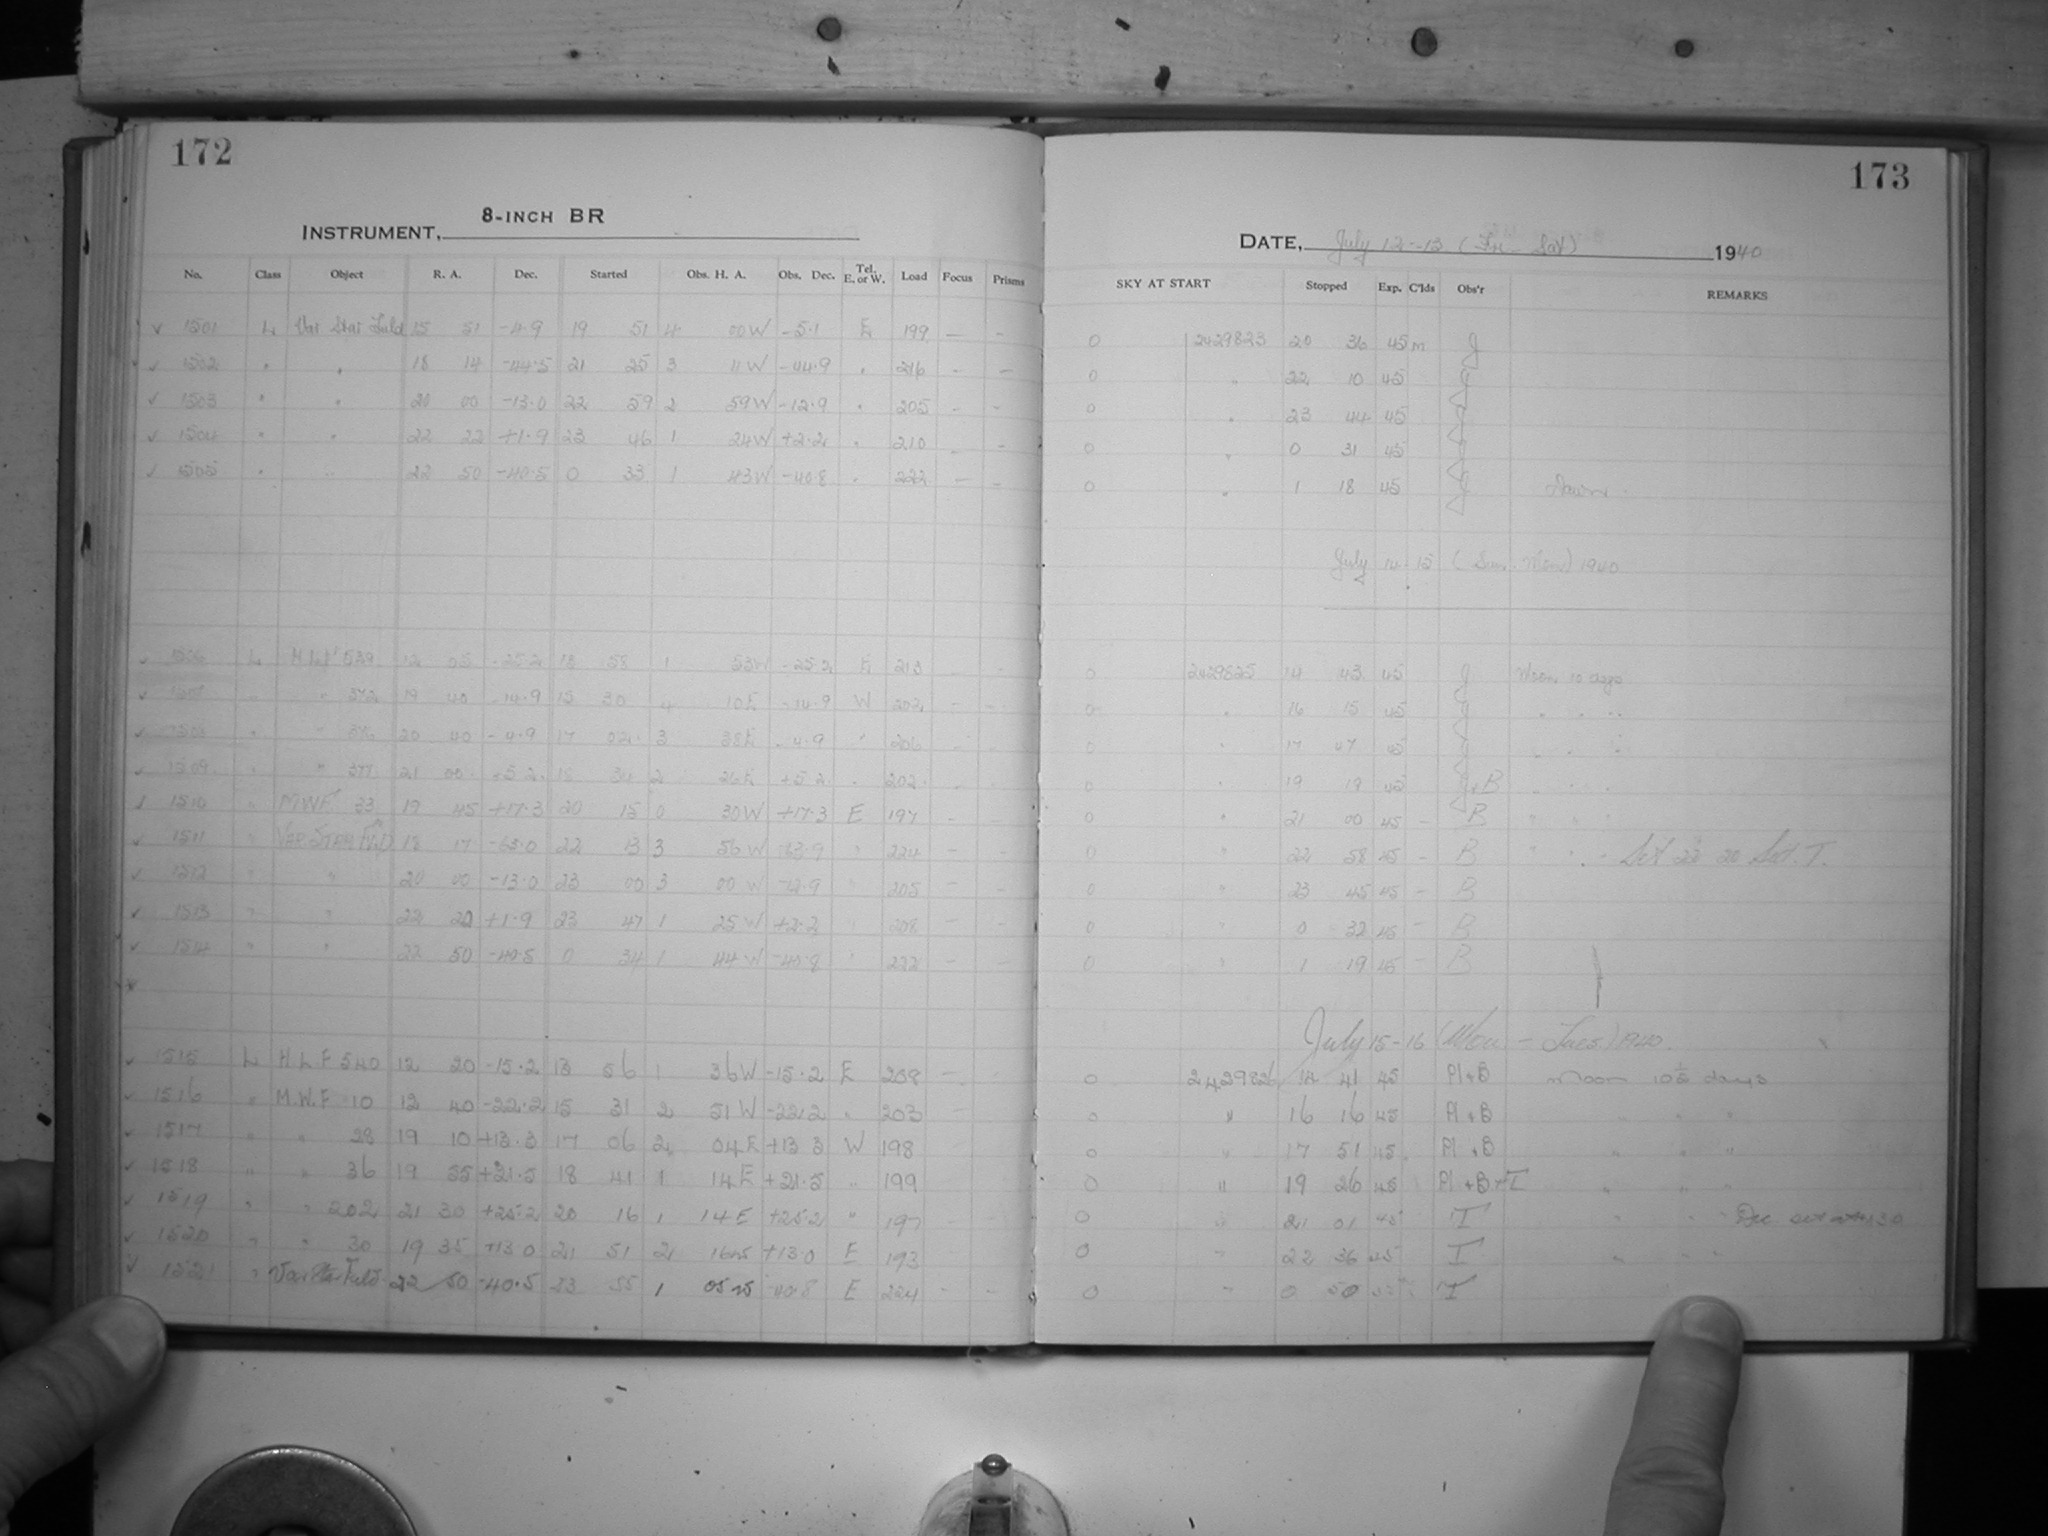 172
8-INCH BR
INSTRUMENT,
No. Class Object R. A. Dec. Started Obs. H. A. Obs. Dec. Tel. E. or W. Load Focus Prisms
1501 L Var Star Field 15 51 -4.9 19 51 4 00W -5.1 E 199 — —
1502 " " 18 14 -44.5 21 25 3 11W -44.9 " 216 — —
1503 " " 20 00 -13.0 22 59 2 59W -12.9 " 205 - -
1504 " " 22 22 +1.9 23 46 1 24W +2.2 " 210 - -
1505 " " 22 50 -40.5 0 33 1 43W -40.8 " 222 — -
1506 L 539 12 05 -25.2 13 58 1 53W -25.2 E 213
1507 " " 372 19 40 -14.9 15 30 4 10E -14.9 W 202 - -
1508 " " 376 20 40 -4.9 17 02 3 38E -4.9 " 206
1509 " " 377 21 00 +5.2 18 34 2 26E +5.2 " 202
1510 " M.W.F. 33 19 45 +17.3 20 15 0 30W +17.3 E 197 - -
1511 " VAR STAR FLD 18 17 -63.0 22 13 3 56W -63.9 " 224 - -
1512 " " 20 00 -13.0 23 00 3 00W -12.9 " 205 - -
1513 " " 22 22 +1.9 23 47 1 25W +2.2 " 208 - -
1514 " " 22 50 -40.5 0 34 1 44W -40.8 " 222 - -
1515 L H L F 540 12 20 -15.2 13 56 1 36W -15.2 E 208 - -
1516 " M.W.F 10 12 40 -22.2 15 31 2 51W -22.2 " 203 -
1517 " " 28 19 10 +13.3 17 06 2 04E +13.3 W 198
1518 " " 36 19 55 +21.5 18 41 1 14E +21.5 " 199
1519 " " 202 21 30 +25.2 20 16 1 14E +25.2 " 197
1520 " " 30 19 35 +13.0 21 51 2 16W +13.0 E 193
1521 " Var Star Field 22 50 -40.5 23 55 1 05W -40.8 E 224 - -
173
DATE, July 12-13 (Fri - Sat) 1940
SKY AT START Stopped Exp. C'lds Obs'r REMARKS
0 2429823 20 36 45m J
0 " 22 10 45 J
0 " 23 44 45 J
0 " 0 31 45 J
0 " 1 18 45 J Dawn.
July 14-15 (Sun. Mon) 1940
0 2429825 14 43 45 J Moon 10 days
0 " 16 15 45 J " " "
0 " 17 47 45 J " " "
0 " 19 19 45 J+B " " "
0 " 21 00 45 - B " " "
0 " 22 58 45 - B " " "
0 " 23 45 45 - B
0 " 0 32 45 - B
0 " 1 19 45 - B
July 15-16 (Mon - Tues) 1940.
0 2429826 14 41 45 Pl+B Moon 10½ days
0 " 16 16 45 Pl+B " " "
0 " 17 51 45 Pl+B " " "
0 " 19 26 45 Pl+B+T " " "
0 " 21 01 45 T " " "
0 " 22 36 45 T " " "
0 " 0 T